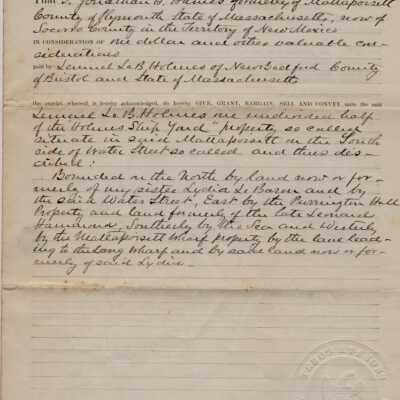 That I, Jonathan H. Holmes formerly of Mattapoisett
County of Plymouth State of Massachusetts, now of
Socorro County in the Territory of New Mexico
IN CONSIDERATION OF one dollar and other valuable con-
siderations
paid by Lemuel LeB. Holmes of New Bedford County
of Bristol and State of Massachusetts
the receipt whereof is hereby acknowledged, do hereby GIVE, GRANT, BARGAIN, SELL AND CONVEY unto the said
Lemuel LeB. Holmes one undivided half
of the Holmes Ship Yard" property, so called
situate in said Mattapoisett on the South
side of Water Street so called and thus des-
cribed:
Bounded on the North by land now or for-
merly of my sister Lydia LeBaron and by
the said Water Street, East by the Purrington Hall
Property and land formerly of the late Leonard
Hammond, Southerly by the Sea and Westerly
by the Mattapoisett Wharf property by the lane lead-
ing to the Long Wharf and by said land now or for-
merly of said Lydia